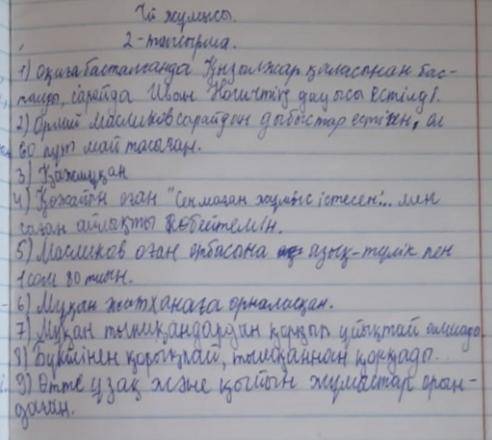 Үй жұмысы.
2-тапсырма.
1) Оқиға басталғанда Қызылжар қаласынан бас-
талды, сарайда Иван Ногичтің дауысы естілді.
2) Масликов сарайдан дыбыстар естіген, ал
60 пұт май тасыған.
3) Қажымұқан
4) Қожайын оған "Сен маған жұмыс істесең... мен
саған айлықты көбейтемін.
5) Масликов оған отбасына азық-түлік пен
1 сом 80 тиын.
6) Мұқан жатханаға орналасқан.
7) Мұқан тышқандардан қорқып ұйықтай алмады.
8) қорықпай, тышқаннан қорқады.
9) Өтте ұзақ және қыйын жұмыстар орын-
даған.